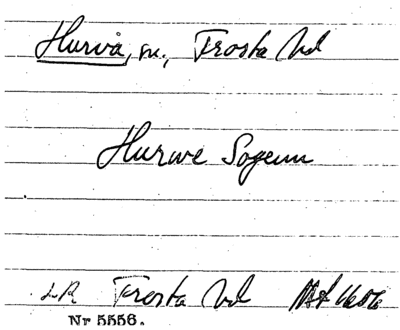 Hurva, sn., Frosta hd
Hurwe Sogenn
LR Frosta hd
Nr 5556.